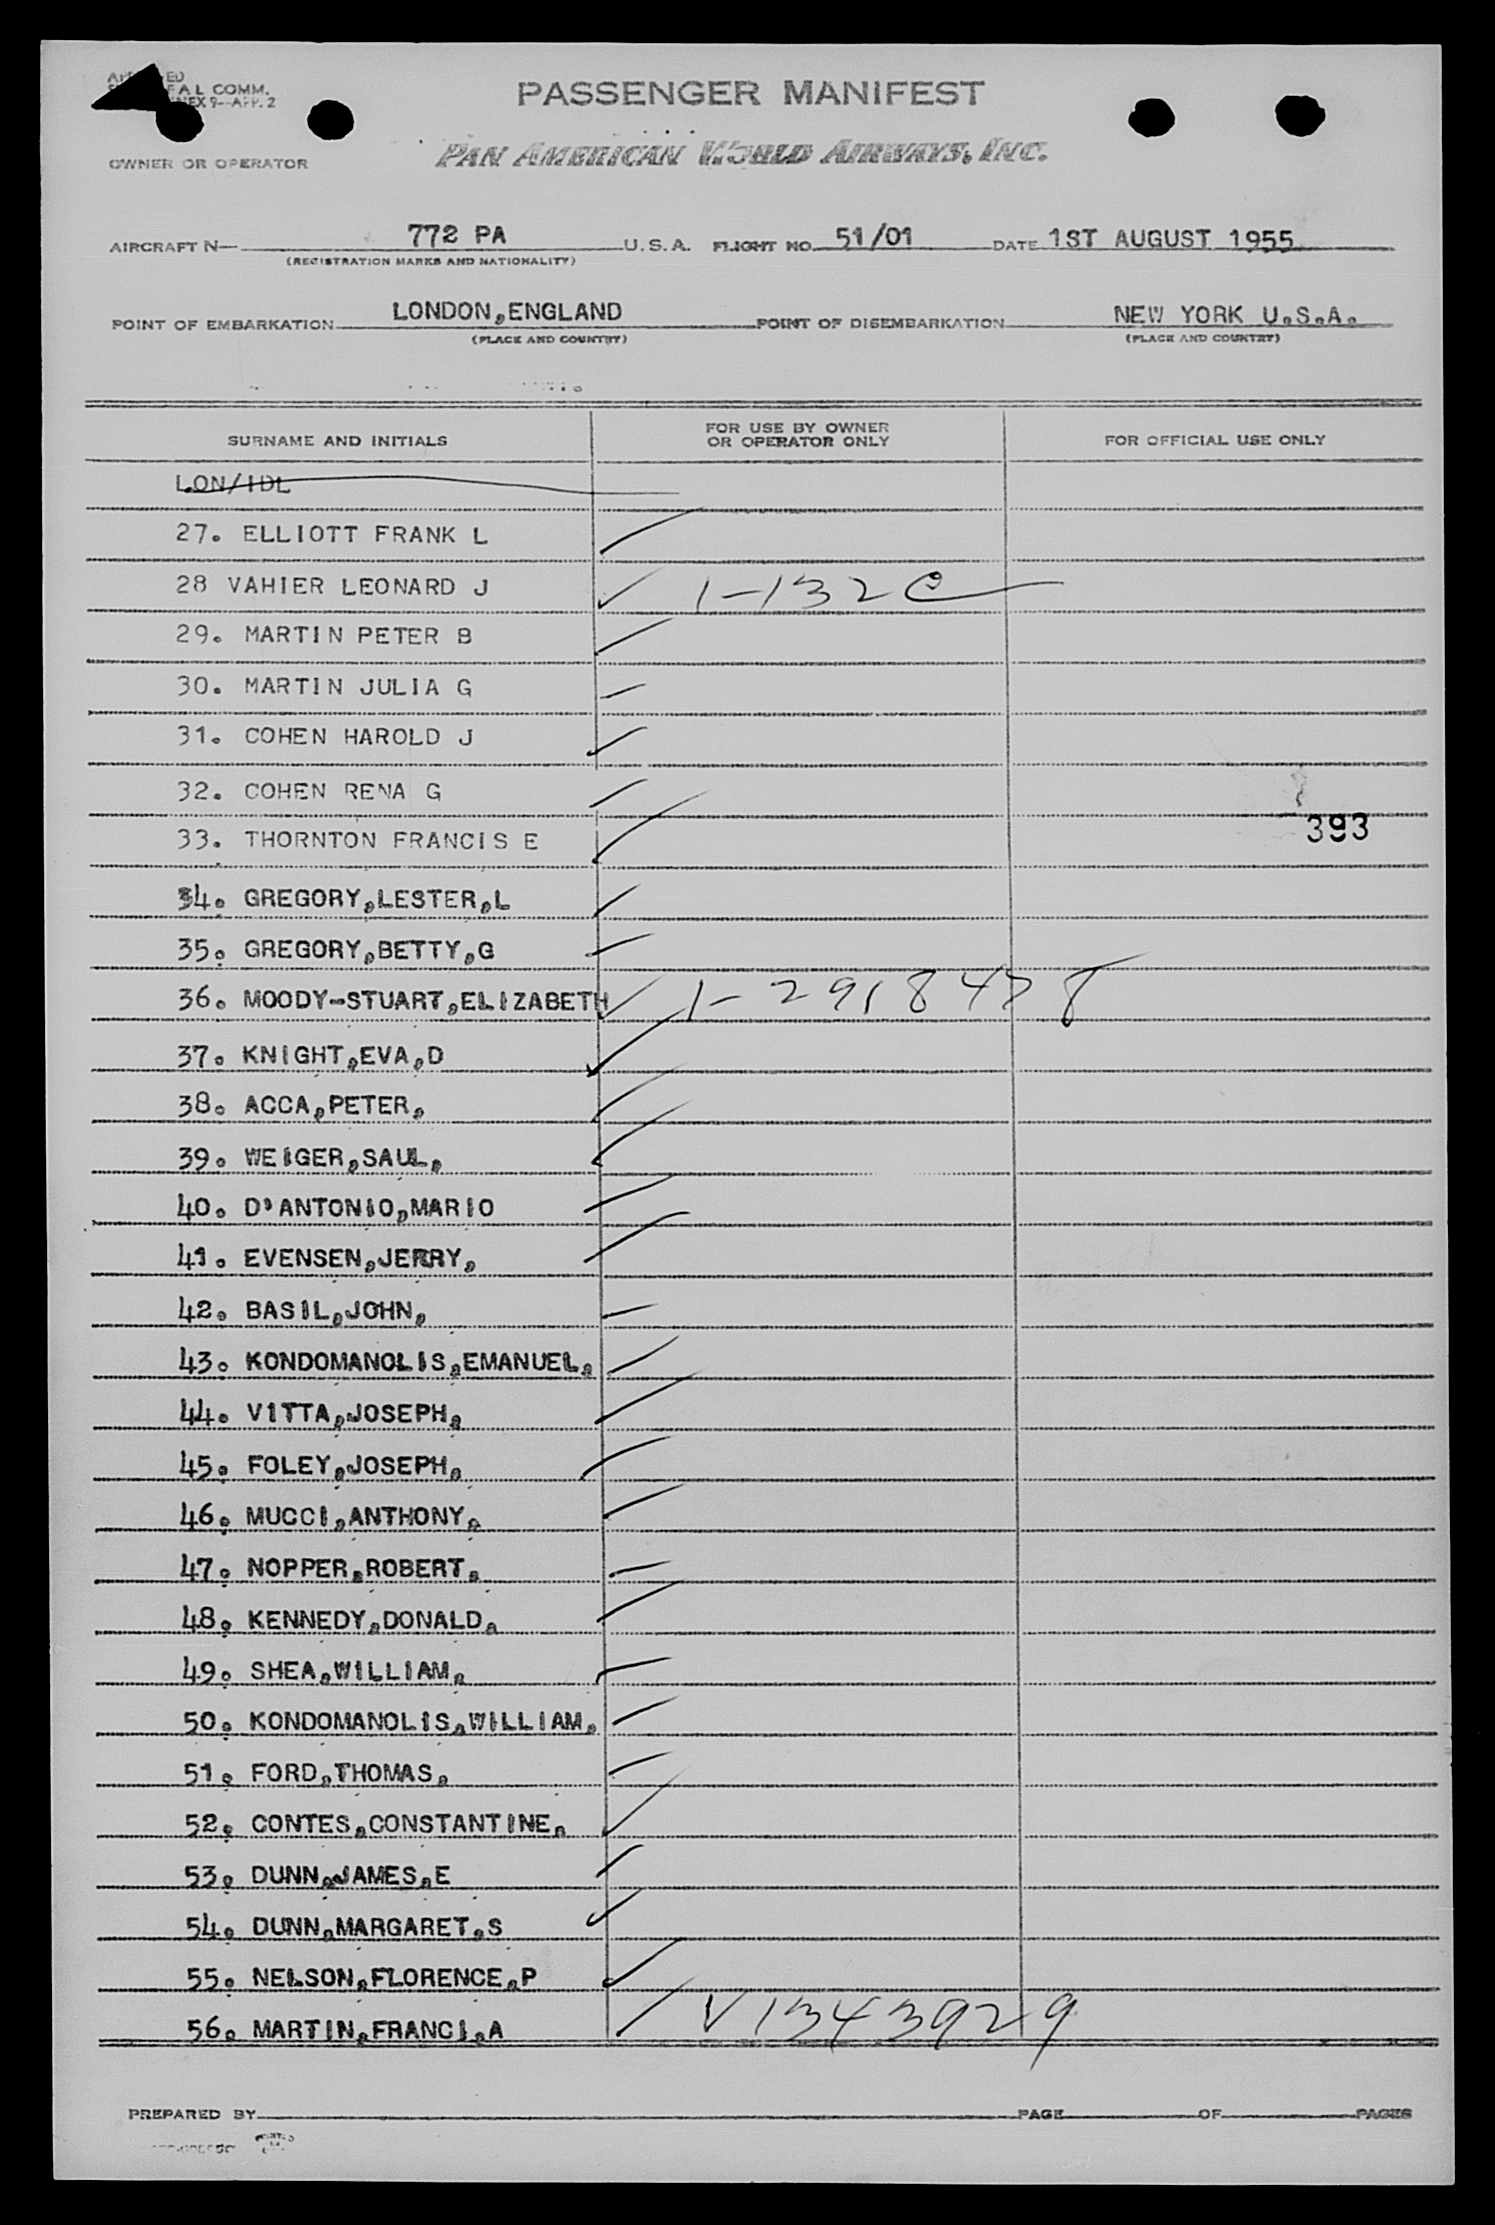 FAL COMM.
NEX 9—APP. 2
PASSENGER MANIFEST
OWNER OR OPERATOR
PAN AMERICAN WORLD AIRWAYS, INC.
AIRCRAFT N— 772 PA U.S.A. FLIGHT NO. 51/01 DATE 1ST AUGUST 1955
(REGISTRATION MARKS AND NATIONALITY)
POINT OF EMBARKATION LONDON,ENGLAND POINT OF DISEMBARKATION NEW YORK U.S.A.
(PLACE AND COUNTRY) (PLACE AND COUNTRY)
SURNAME AND INITIALS FOR USE BY OWNER OR OPERATOR ONLY FOR OFFICIAL USE ONLY
LON/IDL
27. ELLIOTT FRANK L
28 VAHIER LEONARD J 1-132
29. MARTIN PETER B
30. MARTIN JULIA G
31. COHEN HAROLD J
32. COHEN RENA G
33. THORNTON FRANCIS E 393
34. GREGORY,LESTER,L
35. GREGORY,BETTY,G
36. MOODY-STUART,ELIZABETH
37. KNIGHT,EVA,D
38. ACCA,PETER,
39. WEIGER,SAUL,
40. D'ANTONIO,MARIO
41. EVENSEN,JERRY,
42. BASIL,JOHN,
43. KONDOMANOLIS,EMANUEL,
44. VITTA,JOSEPH,
45. FOLEY,JOSEPH,
46. MUCCI,ANTHONY,
47. NOPPER,ROBERT,
48. KENNEDY,DONALD,
49. SHEA,WILLIAM,
50. KONDOMANOLIS,WILLIAM,
51. FORD,THOMAS,
52. CONTES,CONSTANTINE,
53. DUNN,JAMES,E
54. DUNN,MARGARET,S
55. NELSON,FLORENCE,P
56. MARTIN,FRANCI,A V1343929
PREPARED BY PAGE OF PAGES